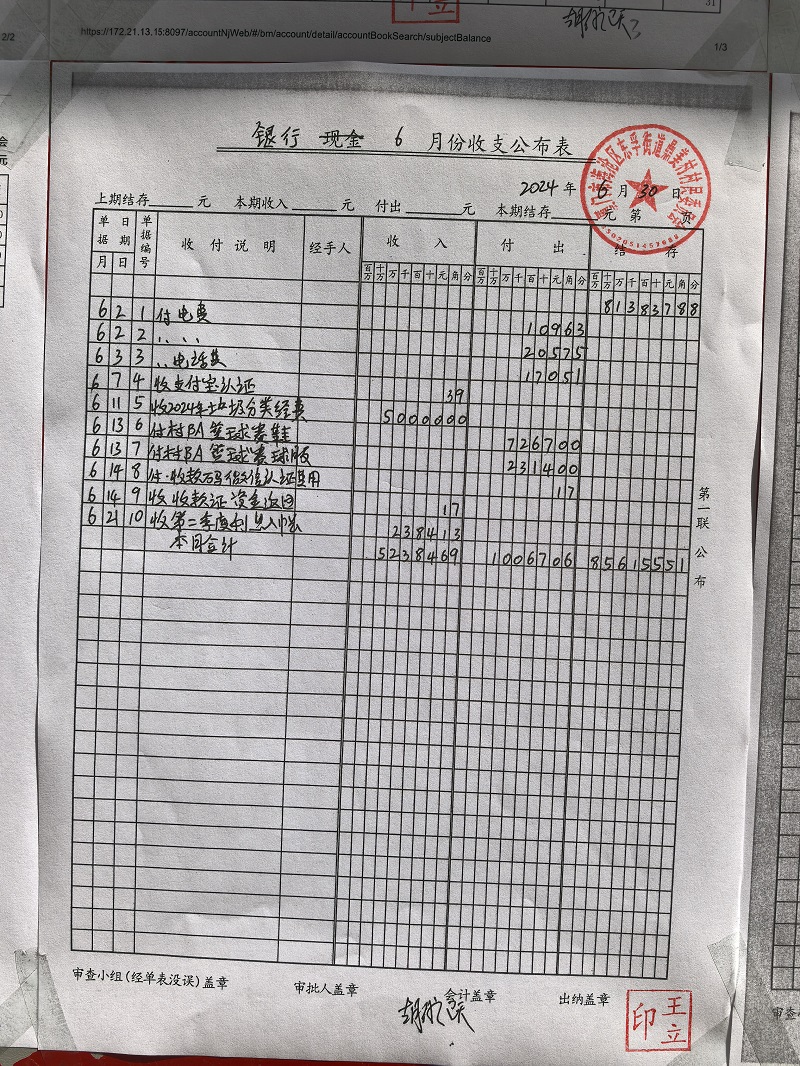 31
https://172.21.13.15:8097/accountNjWeb/#/bm/account/detail/accountBookSearch/subjectBalance
2/2
1/3
银行 现金 6 月份收支公布表
2024 年 6 月 30 日
上期结存 元 本期收入 元 付出 元 本期结存 元 第 页
单据 日期 单据编号 收付说明 经手人 收入 付出 结存
月 日 百万 十万 万 千 百 十 元 角 分 百万 十万 万 千 百 十 元 角 分 百万 十万 万 千 百 十 元 角 分
81383788
6 2 1 付电费 10963
6 2 2 〃 〃 20575
6 3 3 〃电话费 17051
6 7 4 收支付宝认证 39
6 11 5 收2024年垃圾分类经费 5000000
6 13 6 付村BA篮球赛鞋 726700
6 13 7 付村BA篮球赛球服 231400
6 14 8 付收款码微信认证费用 17
6 14 9 收收款证资金返回 17
6 21 10 收第二季度利息入帐 238413
本月合计 5238469 1006706 85615551
第一联 公布
审查小组(经单表没误)盖章 审批人盖章 会计盖章 出纳盖章
王立印